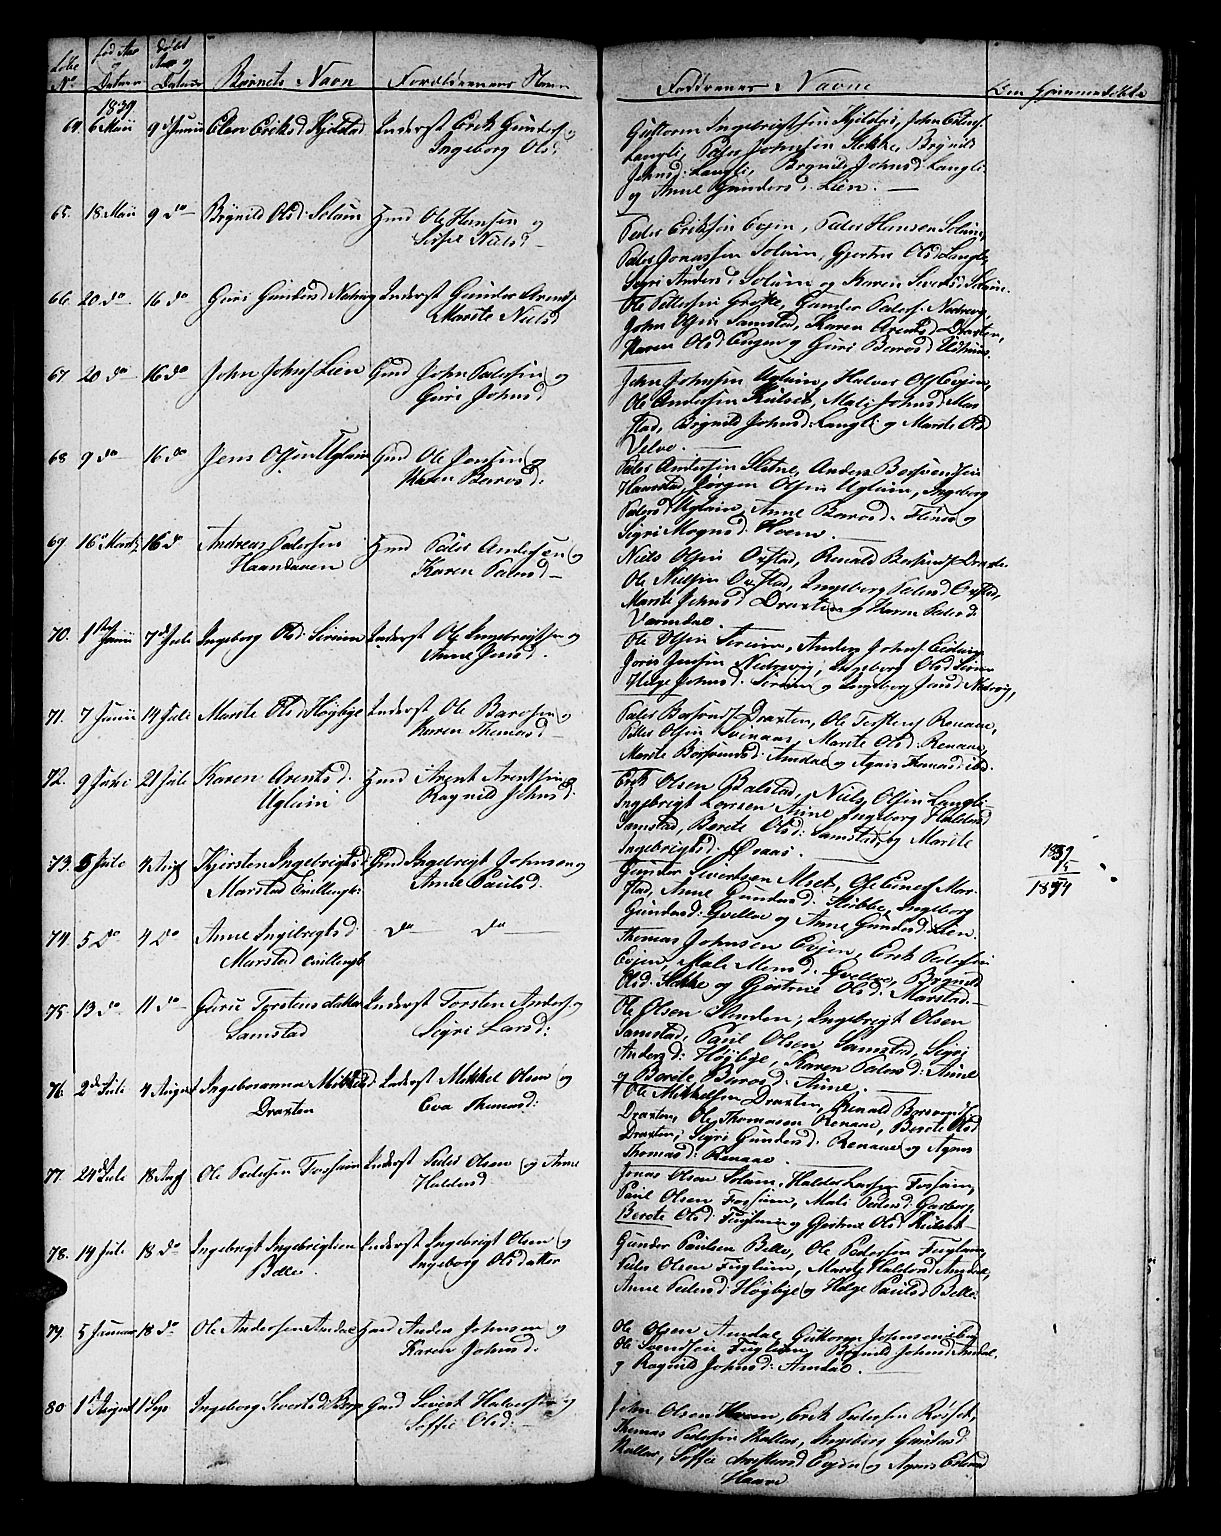 Löbe No
Född Aar og Datum
Döbt Aar og Datum
Barnets Navn
Forældrenes Navn
Faddrenes Navne
Den Hjemmedøbte
1839
64. 6 Maii 9 d Junii Elen Eriksd Kjelstad Inderst Erik Gunders. og
Ingeborg Olsd:
Guttorm Ingebrigtsen Kjeldst, John Peders.
Langli, Peder Johnsen Stokke, Brynild
Johnsd: Langli, Brynild Johnsd: Langli
og Anne Gundersd: Lien. —
65. 18 Maii 9 do Brynild Olsd: Solum Gmd Ole Hansen og
Sissel Nielsd —
Peder Eriksen Evjen, Peder Hansen Solum,
Peder Jonassen Solum, Gjertru Olsd Langli,
Sigri Andersd Solum og Karen Sivertsd Solum.
66. 20 do 16 do Guri Gundersd Nedrevig Inderst Gunder Arnts.
Marete Nielsd
Ole Pettersen Grøtte, Gunder Peders. Nedrevig,
John Olsen Samstad, Karen Arentsd Draxten,
Karen Olsd Engen og Guri Barosd Udhuus.
67 20 do 16 do John Johns. Lien Gmd John Pedersen og
Guri Johnsd
John Johnsen Uglum, Halvor Ols. Evjen,
Ole Andersen Kulset, Mali Johnsd Mar-
stad, Brynild Johnsd: Langli og Marete Olsd
Velve.
68 9 do 16 do Jens Olsen Uglum Gmd Ole Jonsen og
Karen Barosd:
Peder Andersen Sletne, Anders Baarsvendsen
Haarstad, Jørgen Olsen Uglum, Ingeborg
Pedersd Uglum, Anne Barosd: Flønes og
Sigri Mognsd: Hoem.
69 16 Marts 16 do Andreas Pedersen
Haandaven
Gmd Peder Andersen og
Karen Pedersd —
Niels Olsen Oxstad, Renald Borsvends. Draxten
Ole Nielsen Oxstad, Ingeborg Pedersd Oxstad,
Marete Johnsd Draxten og Karen Pedersd
Varmdal.
70. 1 Junii 7 d Julie Ingeborg Olsd: Sirium Inderst Ole Ingebrigtsen og
Anne Jensd.
Ole Olsen Sirium, Anders Johns. Eidem
Joris Jensen Nedrevig, Ingeborg Olsd Sirium
Helge Johnsd: Sirium og Ingeborg Jensd Nedrevig,
71. 7 Junii 14 Julie Marete Olsd: Høybye Inderst Ole Barosen og
Karen Thomasd
Peder Borsvends. Draxten, Ole Torstens. Renaae,
Peder Olsen Svinaas, Marete Olsd: Renaae,
Marete Borsvendsd: Amdal og Agnis Thomasd: ibd.
72. 9 Juni 21 Julie Karen Arentsd.
Uglum
Gmd Arent Arentsen og
Ragnild Johnsd:
Erik Olsen Balstad, Niels Olsen Langli —
Ingebrigt Larsen Aune, Ingeborg Haldorsd
Samstad, Berete Olsd: Samstad og Marete
Ingebrigtsd: Øraas.
73. 5 Julie 4 Aug Kjersten Ingebrigtsd
Marstad tvillingb
Gmd Ingebrigt Johnsen og
Anne Paulsd.
Gunder Sivertsen Alset, Ole Eners. Mar-
stad, Anne Gundersd: Stubbe, Ingeborg
Gundersd: Qvello og Anne Gundersd: Lien.
1839
15
1854
74. 5 do 4 do Anne Ingebrigtsd.
Marstad tvillingb
do — do —
Thomas Johnsen Evjen, Erik Pedersen
Evjen, Mali Monsd: Qvello, Brynild
Olsd: Stokke og Gjertrue Olsd: Marstad.
75. 13 do 11 do Guru Torstensdatter
Samstad
Inderst Torsten Anders. og
Sigri Larsd:
Ole Olsen Stenden, Ingebrigt Olsen
Samstad, Paul Olsen Samstad, Sigri
Andersd: Høybye, Karen Pedersd: Aune
og Berete Barosd: Aune.
76. 2 d Julie 4 August Ingebnanna Mikkelsd
Draxten
Inderst Mikkel Olsen og
Eva Thomasd:
Ole Mikkelsen Draxten, Renald Borsvends.
Draxten, Ole Thomasen Renaae, Berete Olsd
Draxten, Sigri Gundersd: Renaae og Agnes
Thomasd: Renaae.
77. 24 d Julie 18 Aug Ole Pedersen Fossum Inderst Peder Olsen og Anne
Haldorsd
Jonas Olsen Solum, Haldor Larsen Fossum,
Paul Olsen Fossum, Mali Pedersd: Garberg,
Berete Olsd: Fuglum og Gjertrue Olsd Kulset.
78. 14 Julie 18 do Ingebrigt Ingebrigtsen
Belle.
Inderst Ingebrigt Olsen og
Ingeborg Olsdatter
Gunder Paulsen Belle, Ole Pedersen Fuglum,
Peder Olsen Fuglum, Marete Haldorsd Amdal,
Anne Pedersd: Høybye og Helge Paulsd Belle.
79. 5 Januar 18 do Ole Andersen Amdal Gmd Anders Johnsen og
Karen Johnsd.
Ole Olsen Amdal, Guttorm Johnsen ibd,
Ole Svendsen Fuglem, Brynild Johnsd Amdal
og Ragnild Johnsd: Amdal.
80 1 August 1 Sep Ingeborg Sivertsd: Berge Gmd Sivert Halvorsen og
Soffie Olsd: —
John Olsen Hoem, Erik Pedersen Rolset,
Thomas Pedersen Kallar, Ingeborg Guttormsd
Kallar, Soffie Arntsd Evjen og Agnis Estensd
Haave